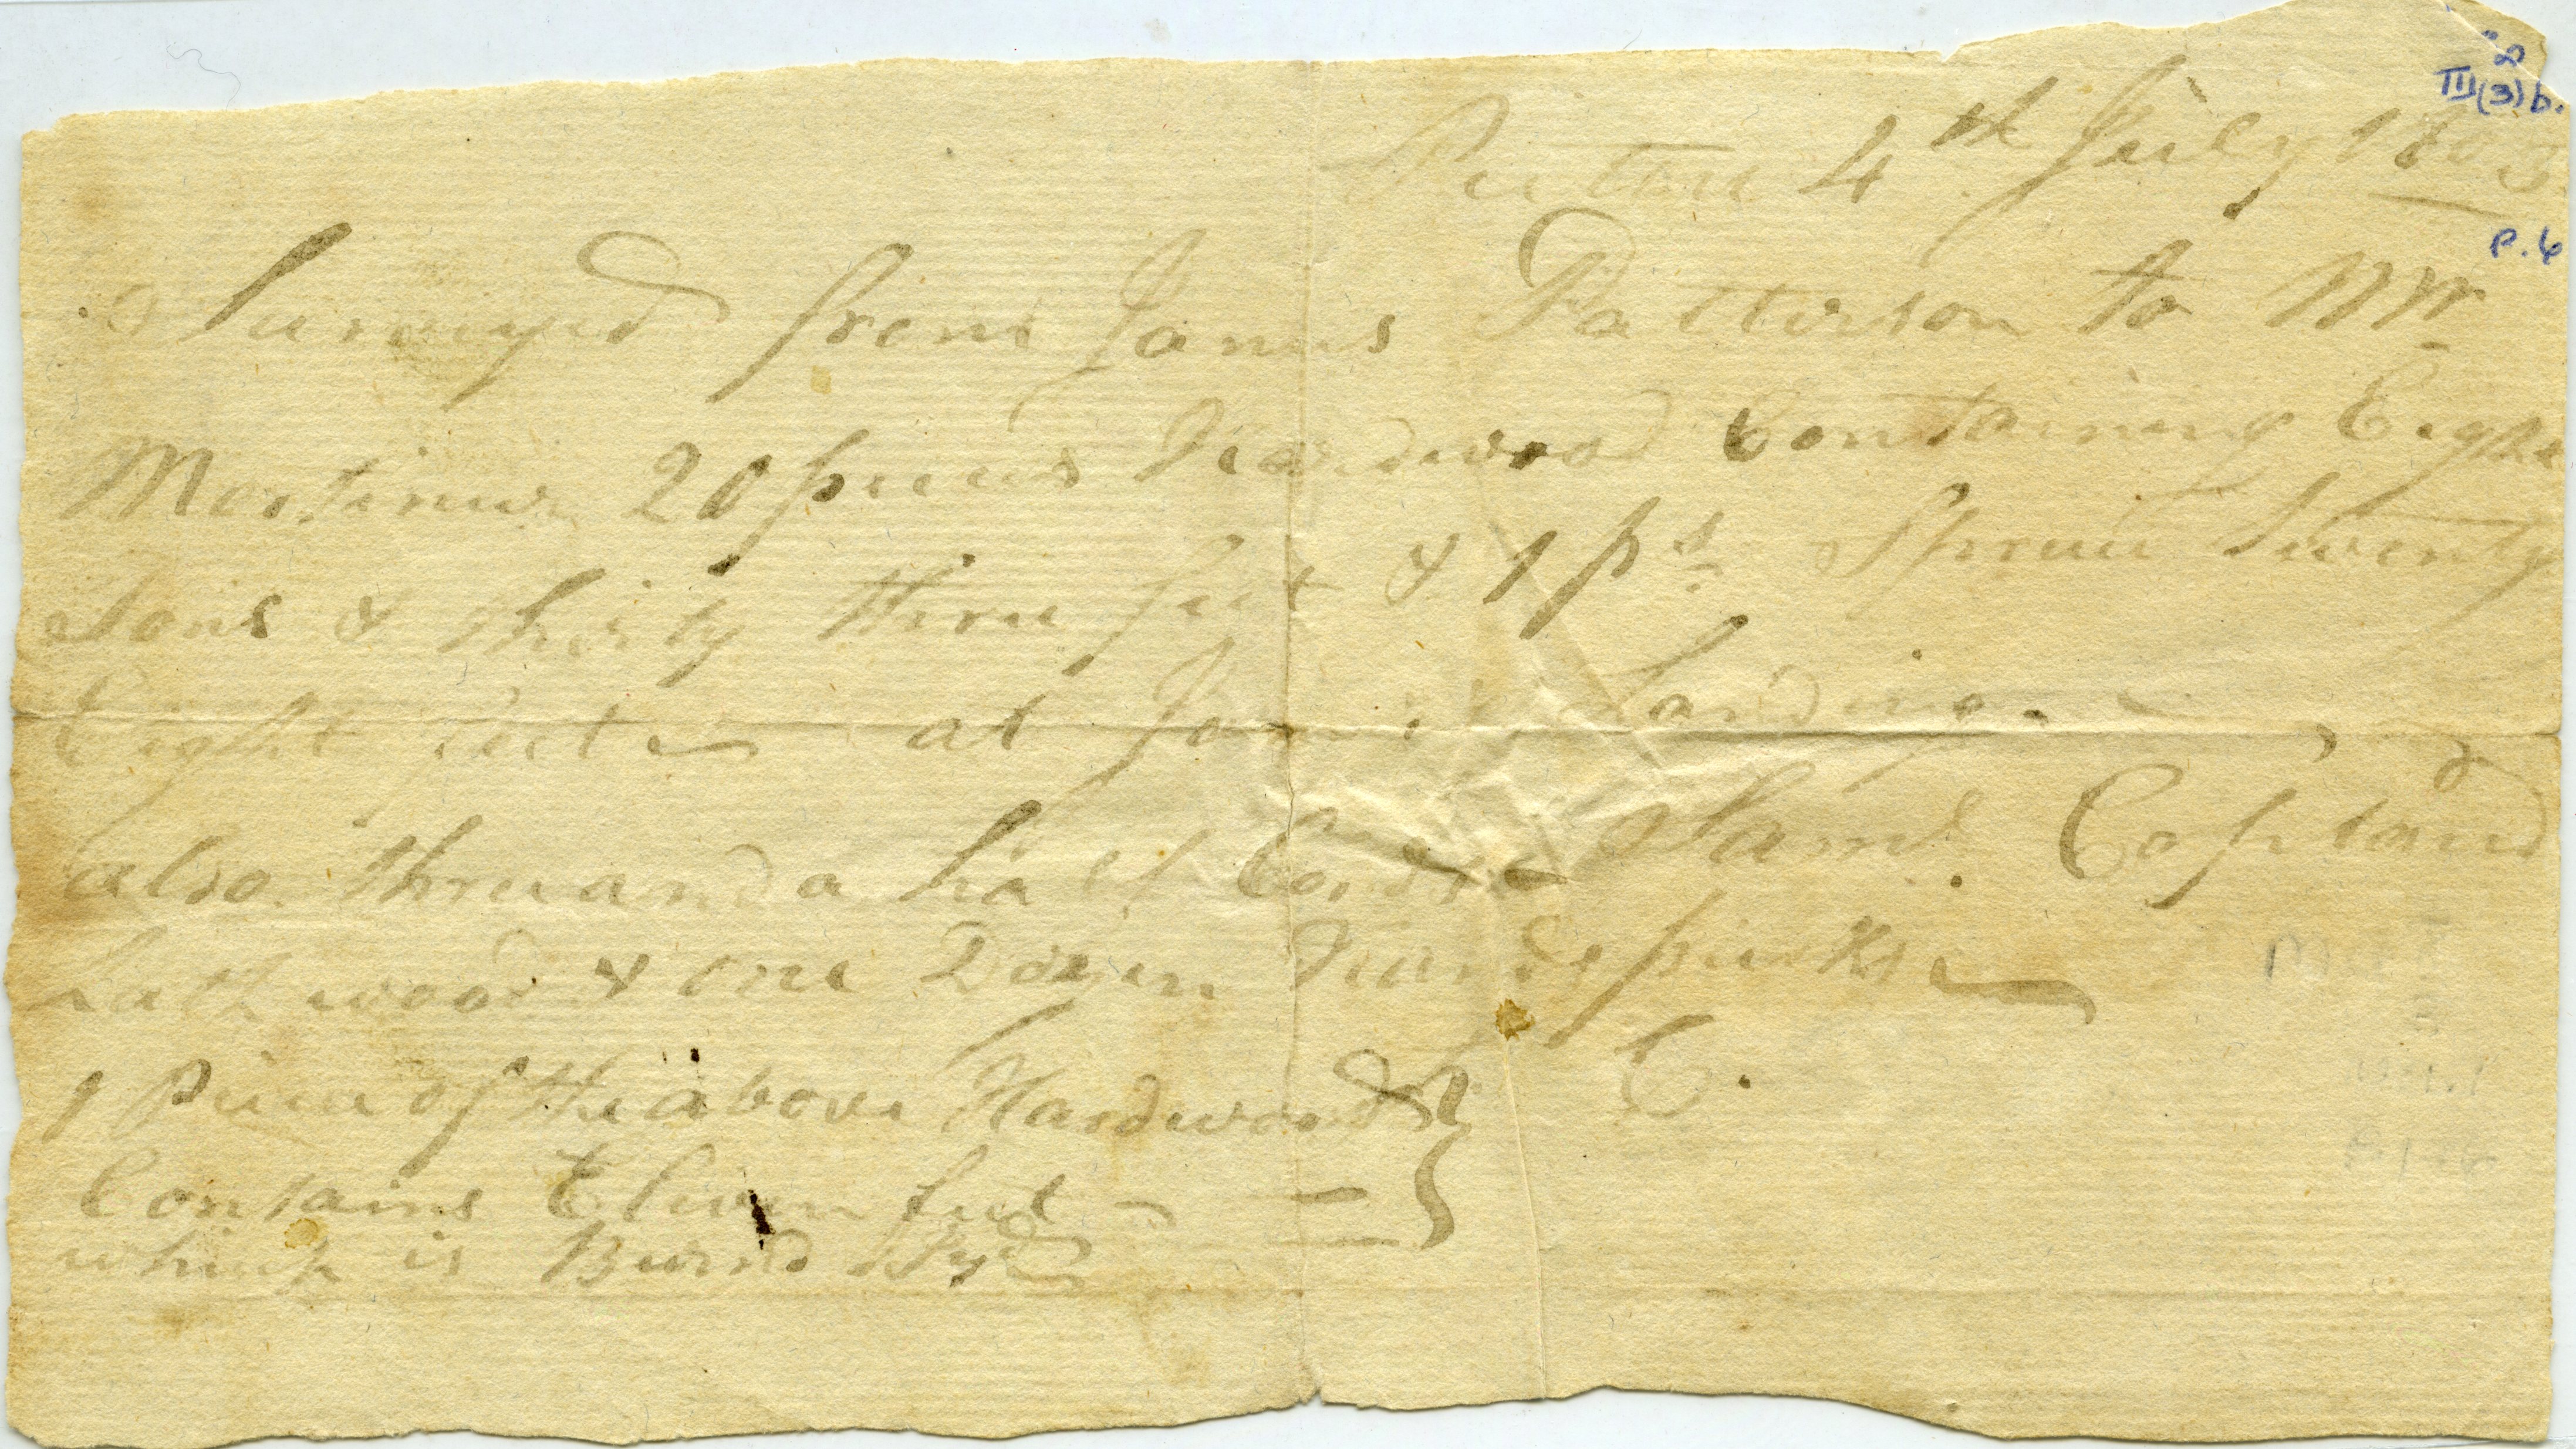 2
III(3)b.
Pictou 4th July 1803
P.6
Surveyed from James Patterson to Mr
Mortimer 20 pieces Hardwood Containing Eight
Tons & thirty three feet & 1 ps Spruce Twenty
Eight feet at James Landing
also three and a half Cords Saml Copland
Lathwood & one Dozen Handspicks
1 Piece of the above Hardwood C.
Contains Eleven feet
which is Burnd